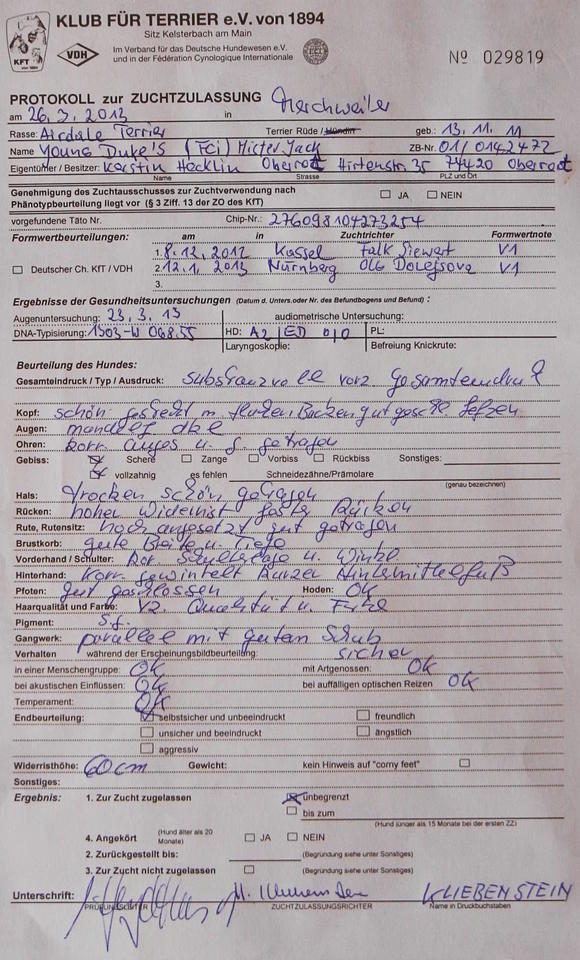 KLUB FÜR TERRIER e.V. von 1894
Sitz Kelsterbach am Main
Im Verband für das Deutsche Hundewesen e.V.
und in der Fédération Cynologique Internationale
KFT
VDH
Nº 029819
PROTOKOLL zur ZUCHTZULASSUNG Merchweiler
am 26.3.2013 in
Rasse: Airdale Terrier Terrier Rüde / Hündin geb.: 13.11.11
Name Young Duke's (FCI) Mister Jack ZB-Nr. 01/0142472
Eigentümer / Besitzer: Kerstin Hecklin Oberrot Hirtenstr. 35 74420 Oberrot
Name Strasse PLZ und Ort
Genehmigung des Zuchtausschusses zur Zuchtverwendung nach
Phänotypbeurteilung liegt vor (§ 3 Ziff. 13 der ZO des KfT) JA NEIN
vorgefundene Täto Nr. Chip-Nr.: 276098104273254
Formwertbeurteilungen: am in Zuchtrichter Formwertnote
1. 8.12.2012 Kassel Falk Siewert V1
Deutscher Ch. KfT / VDH 2. 12.1.2013 Nürnberg Olg Dolejsova V1
3.
Ergebnisse der Gesundheitsuntersuchungen (Datum d. Unters.oder Nr. des Befundbogens und Befund) :
Augenuntersuchung: 23.3.13 audiometrische Untersuchung:
DNA-Typisierung: 1303-W 068.55 HD: A2 ED 0/0 PL:
Laryngoskopie: Befreiung Knickrute:
Beurteilung des Hundes:
Gesamteindruck / Typ / Ausdruck: substanzvolle vorz. Gesamteindruck
Kopf: schön gestreckt m flachen Backen, gut geschl. Lefzen
Augen: mandelf dkl
Ohren: korr anges u. g. getragen
Gebiss: Schere Zange Vorbiss Rückbiss Sonstiges:
vollzahnig es fehlen Schneidezähne/Prämolare
(genau bezeichnen)
Hals: trocken schön getragen
Rücken: hoher Widerrist fester Rücken
Rute, Rutensitz: hoch angesetzt gut getragen
Brustkorb: gute Breite u. Tiefe
Vorderhand / Schulter: kor. Schulterlage u. Winkl
Hinterhand: Korr gewinkelt kurzer Hintermittelfuß
Pfoten: gut geschlossen Hoden: OK
Haarqualität und Farbe: VZ Qualität u. Farbe
Pigment: s.g.
Gangwerk: parallel mit gutem Schub
Verhalten während der Erscheinungsbildbeurteilung: sicher
in einer Menschengruppe: OK mit Artgenossen: OK
bei akustischen Einflüssen: OK bei auffälligen optischen Reizen OK
Temperament: OK
Endbeurteilung: selbstsicher und unbeeindruckt freundlich
unsicher und beeindruckt ängstlich
aggressiv
Widerristhöhe: 60cm Gewicht: kein Hinweis auf "corny feet"
Sonstiges:
Ergebnis: 1. Zur Zucht zugelassen unbegrenzt
bis zum
(Hund jünger als 15 Monate bei der ersten ZZ)
4. Angekört (Hund älter als 20 Monate) JA NEIN
2. Zurückgestellt bis: (Begründung siehe unter Sonstiges)
3. Zur Zucht nicht zugelassen (Begründung siehe unter Sonstiges)
Unterschrift: KLIEBENSTEIN
ZUCHTZULASSUNGSRICHTER Name in Druckbuchstaben